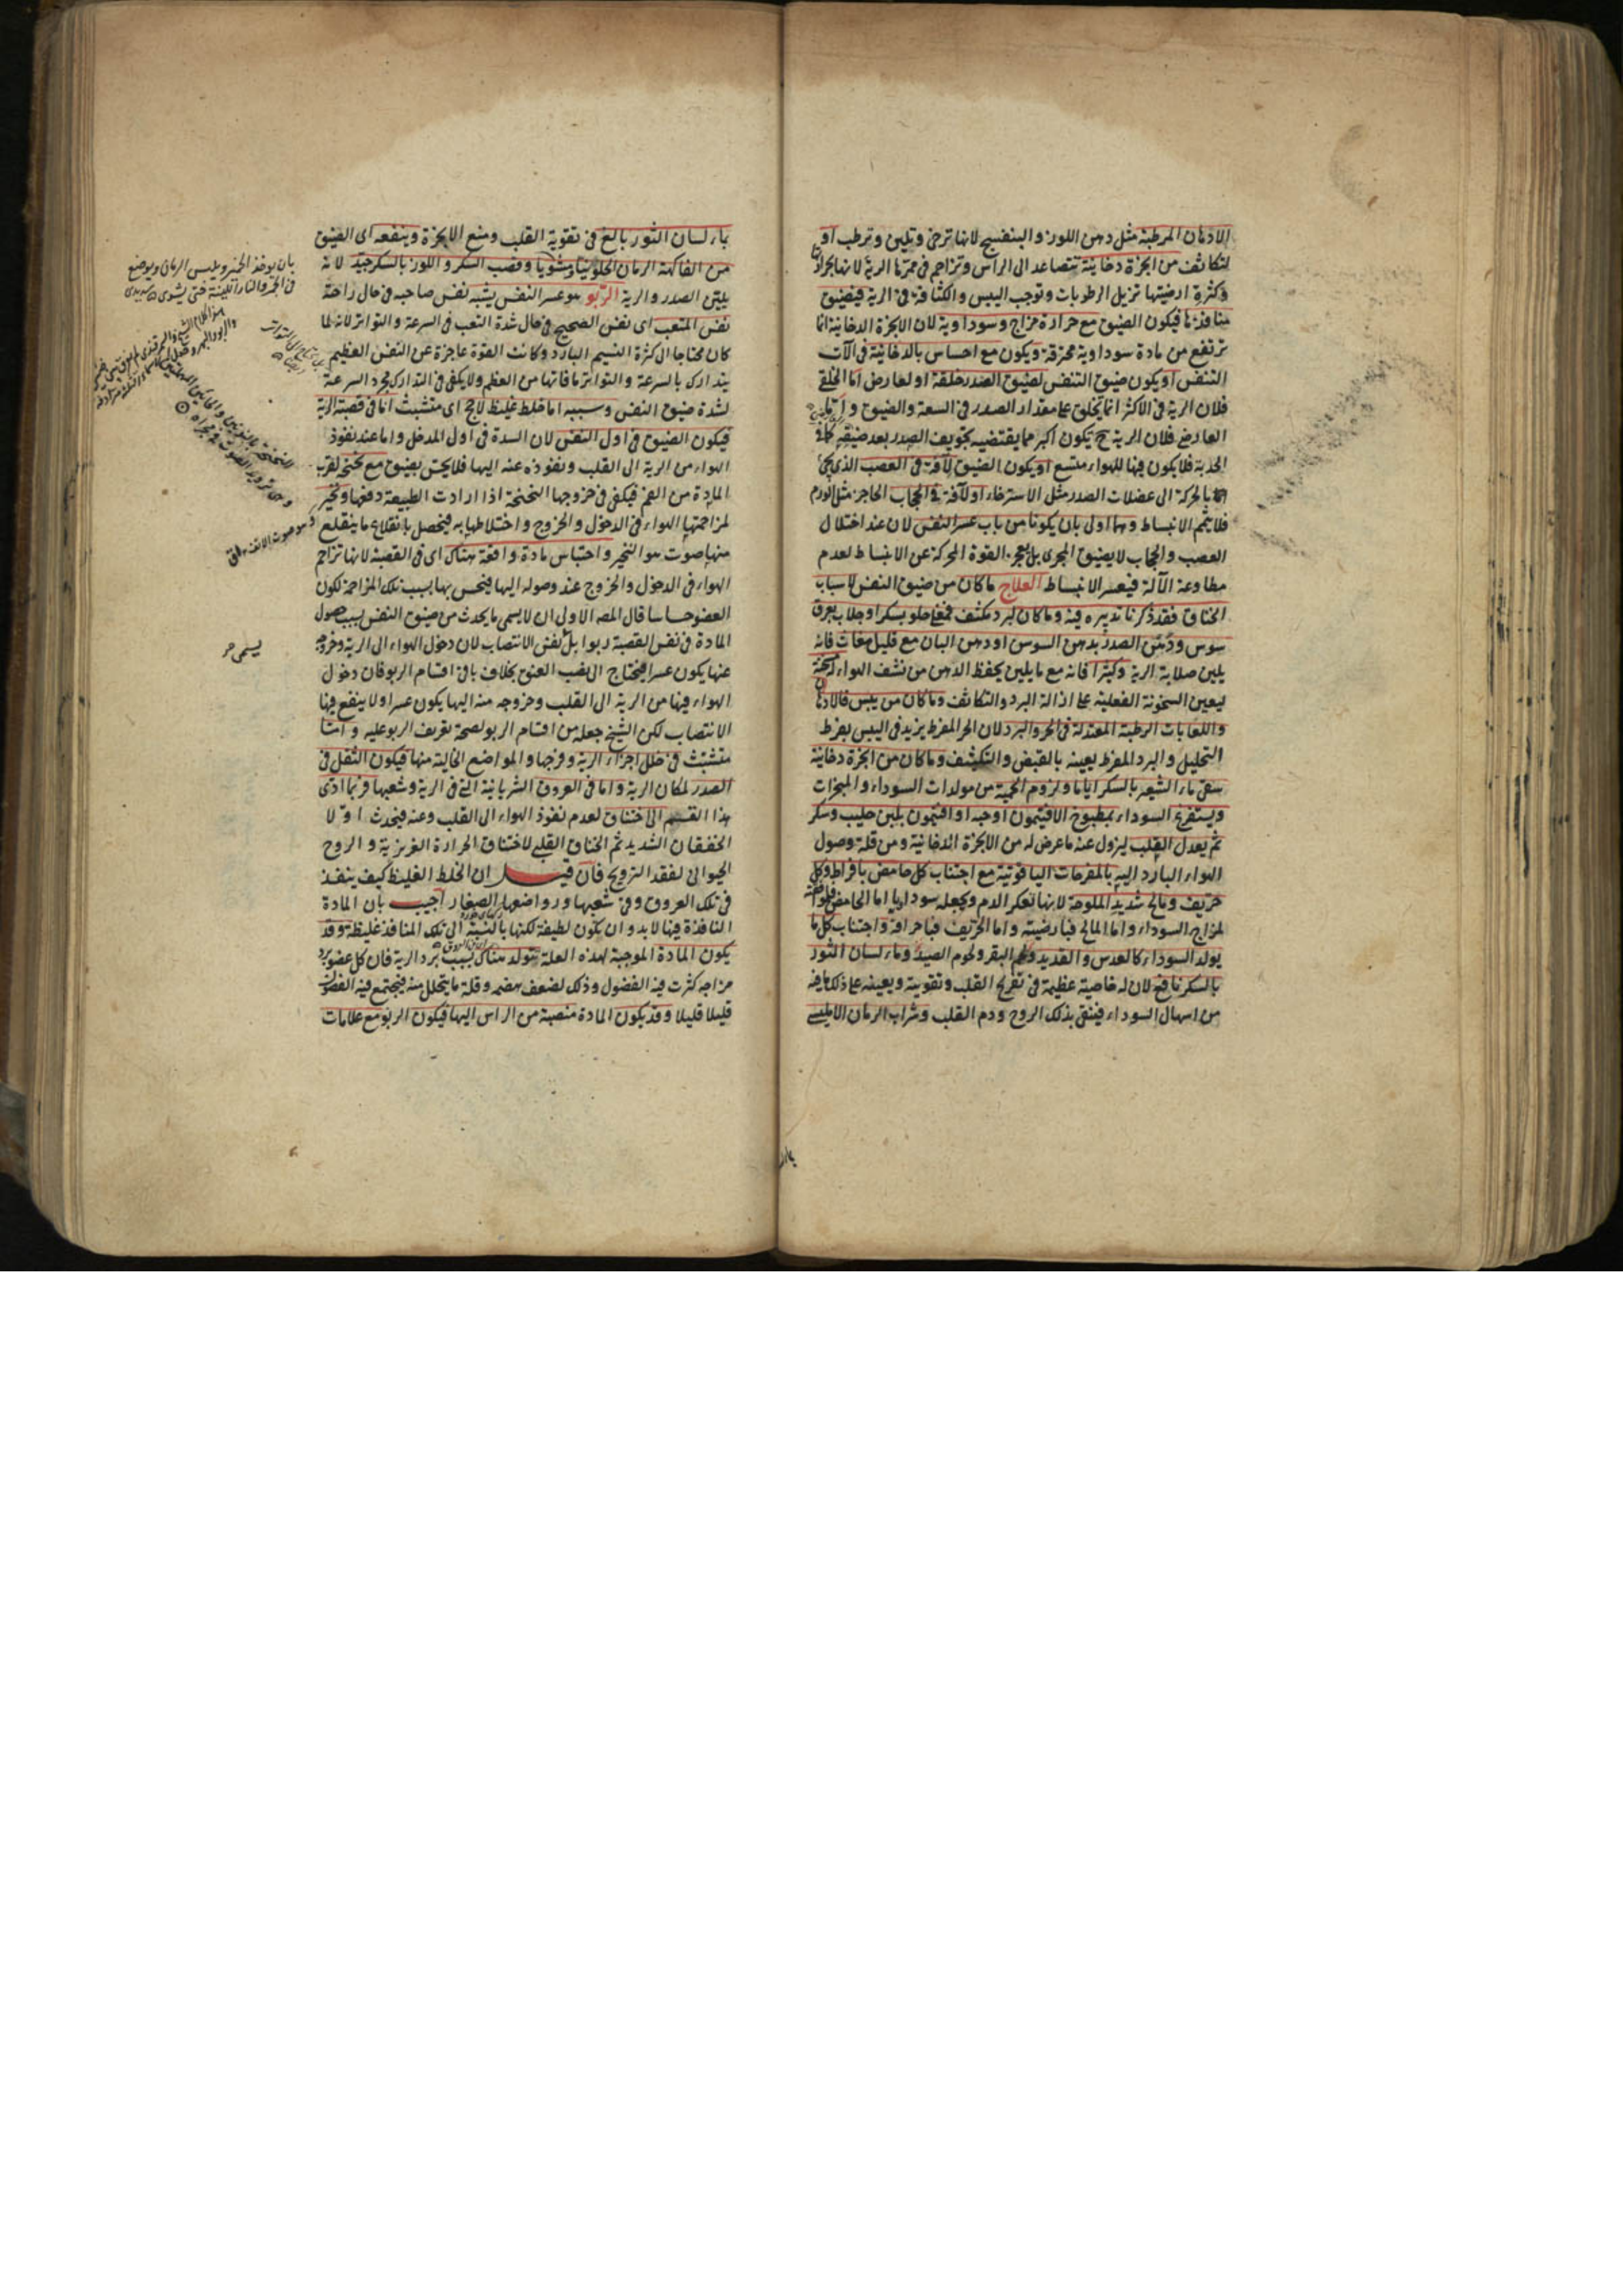 الادهان المرطبة مثل دهن اللوز والبنفسج لانها ترخى وتلين وترطب او
لتكاثف من ابخرة دخانية تتصاعد الى الراس وتزاحم فى ممرها الرية لانها بحرارتها
وكثرة ارضيتها تزيل الرطوبات وتوجب اليبس والكثافة فى الرية فيضيق
منافذها فيكون الضيق مع حرارة مزاج وسوداوية لان الابخرة الدخانية انما
ترتفع من مادة سوداوية محترقة ويكون مع احساس بالدخانية فى آلات
التنفس او يكون ضيق التنفس لضيق الصدر خلقة او لعارض اما الخلقى
فلان الرية فى الاكثر انما تخلق على مقدار الصدر فى السعة والضيق واما
العارض فلان الرية ح يكون اكبر مما يقتضيه تجويف الصدر بعد ضيقه كما فى
الحدبة فلا يكون فيها للهواء متسع او يكون الضيق لآفة فى العصب الذى يجئ
بالحركة الى عضلات الصدر مثل الاسترخاء او لآفة فى الحجاب الحاجز مثل الورم
فلا يتم الانبساط وهما اولى بان يكونا من باب عسر النفس لان عند اختلال
العصب والحجاب لا يضيق المجرى بل يعجز القوة المحركة عن الانبساط لعدم
مطاوعة الآلة فيعسر الانبساط العلاج ما كان من ضيق النفس لاسباب
الخناق فقد ذكرنا تدبيره فيه وما كان لبرد مكثف فمغلى حلو بسكر او جلاب بعرق
سوس ودهن الصدر بدهن السوس او دهن البان مع قليل مغاث فانه
يلين صلابة الرية وكثيرا فانه مع ما يلين يحفظ الدهن من نشف الهواء
ليعين السخونة الفعلية على ازالة البرد والتكاثف وما كان من يبس فالادهان
واللعابات الرطبة المعتدلة فى الحر والبرد لان الحر المفرط يزيد فى اليبس بفرط
التحليل والبرد المفرط يعينه بالقبض والتكثيف وما كان من ابخرة دخانية
سقى ماء الشعير بالسكر اياما ولزوم الحمية من مولدات السوداء والمبخرات
ويستفرغ السوداء بمطبوخ الافتيمون اوحبه او افتيمون بلبن حليب وسكر
ثم يعدل القلب ليزول عنه ما عرض له من الابخرة الدخانية ومن قلة وصول
الهواء البارد اليه بالمفرحات الياقوتية مع اجتناب كل حامض بافراط وكل
حريف ومالح شديد الملوحة لانها تعكر الدم ويجعله سوداويا اما الحامض فلموافقته
لمزاج السوداء واما المالح فبارضيته واما الحريف فباحراقه واجتناب كل ما
يولد السوداء كالعدس والقديد ولحم البقر ولحوم الصيد وماء لسان الثور
بالسكر نافع لان له خاصية عظيمة فى تفريح القلب وتقويته ويعينه على ذلك ما فيه
من اسهال السوداء فينقى بذلك الروح ودم القلب وشراب الرمان الامليسى
بماء
بماء لسان الثور بالغ فى تقوية القلب ومنع الابخرة وينفعه اى الضيق
من الفاكهة الرمان الحلو نيا ومشويا وقصب السكر واللوز بالسكر جيد لانه
يلين الصدر والرية الربو هو عسر النفس يشبه نفس صاحبه فى حال راحة
نفس المتعب اى نفس الصحيح فى حال شدة التعب فى السرعة والتواتر لانه لما
كان محتاجا الى كثرة النسيم البارد وكانت القوة عاجزة عن النفس العظيم
يتدارك بالسرعة والتواتر ما فاتها من العظم ولا يكفى فى التدارك مجرد السرعة
لشدة ضيق النفس وسببه اما خلط غليظ لاحج اى متشبث اما فى قصبة الرية
فيكون الضيق فى اول النفس لان السدة فى اول المدخل واما عند نفوذ
الهواء من الرية الى القلب ونفوذه عنه اليها فلا يحس بضيق مع تنحنح لقرب
المادة من الفم فيكفى فى خروجها التنحنح اذا ارادت الطبيعة دفعها ونخير
لمزاحمتها الهواء فى الدخول والخروج واختلاطها به فيحصل بانقلاع ما ينقلع
منها صوت هو النخير واحتباس مادة واقفة هناك اى فى القصبة لانها تزاحم
الهواء فى الدخول والخروج عند وصوله اليها فيحس بها بسبب تلك المزاحمة لكون
العضو حساسا قال المصـ الاولى ان لا يسمى ما يحدث من ضيق النفس بسبب حصول
المادة فى نفس القصبة ربوا بل نفس الانتصاب لان دخول الهواء الى الرية وخروجه
عنها يكون عسرا فيحتاج الى نصب العنق بخلاف باقى اقسام الربو فان دخول
الهواء فيها من الرية الى القلب وخروجه منه اليها يكون عسرا ولا ينفع فيها
الانتصاب لكن الشيخ جعله من اقسام الربو لصحة تعريف الربو عليه واما
متشبث فى خلل اجزاء الرية وفرجها والمواضع الخالية منها فيكون الثقل فى
الصدر لمكان الرية واما فى العروق الشريانية التى فى الرية وشعبها وربما ادى
هذا القسم الى اختناق لعدم نفوذ الهواء الى القلب وعنه فيحدث اولا
الخفقان الشديد ثم الخناق القلبى لاختناق الحرارة الغريزية والروح
الحيوانى لفقد الترويح فان قيل ان الخلط الغليظ كيف ينفذ
فى تلك العروق وفى شعبها ورواضعها الصغار اجيب بان المادة
النافذة فيها لابد وان يكون لطيفة لكنها بالنسبة الى تلك المنافذ غليظة وقد
يكون المادة الموجبة لهذه العلة تتولد هناك بسبب برد الرية فان كل عضو برد
مزاجه كثرت فيه الفضول وذلك لضعف هضمه وقلة ما يتحلل منه فيجتمع فيه الفضول
قليلا قليلا وقد يكون المادة منصبة من الراس اليها فيكون الربو مع علامات
بان يؤخذ الخبز ويلبس الرمان ويوضع
فى الجمر والنار اللينة حتى يشوى
يسمى